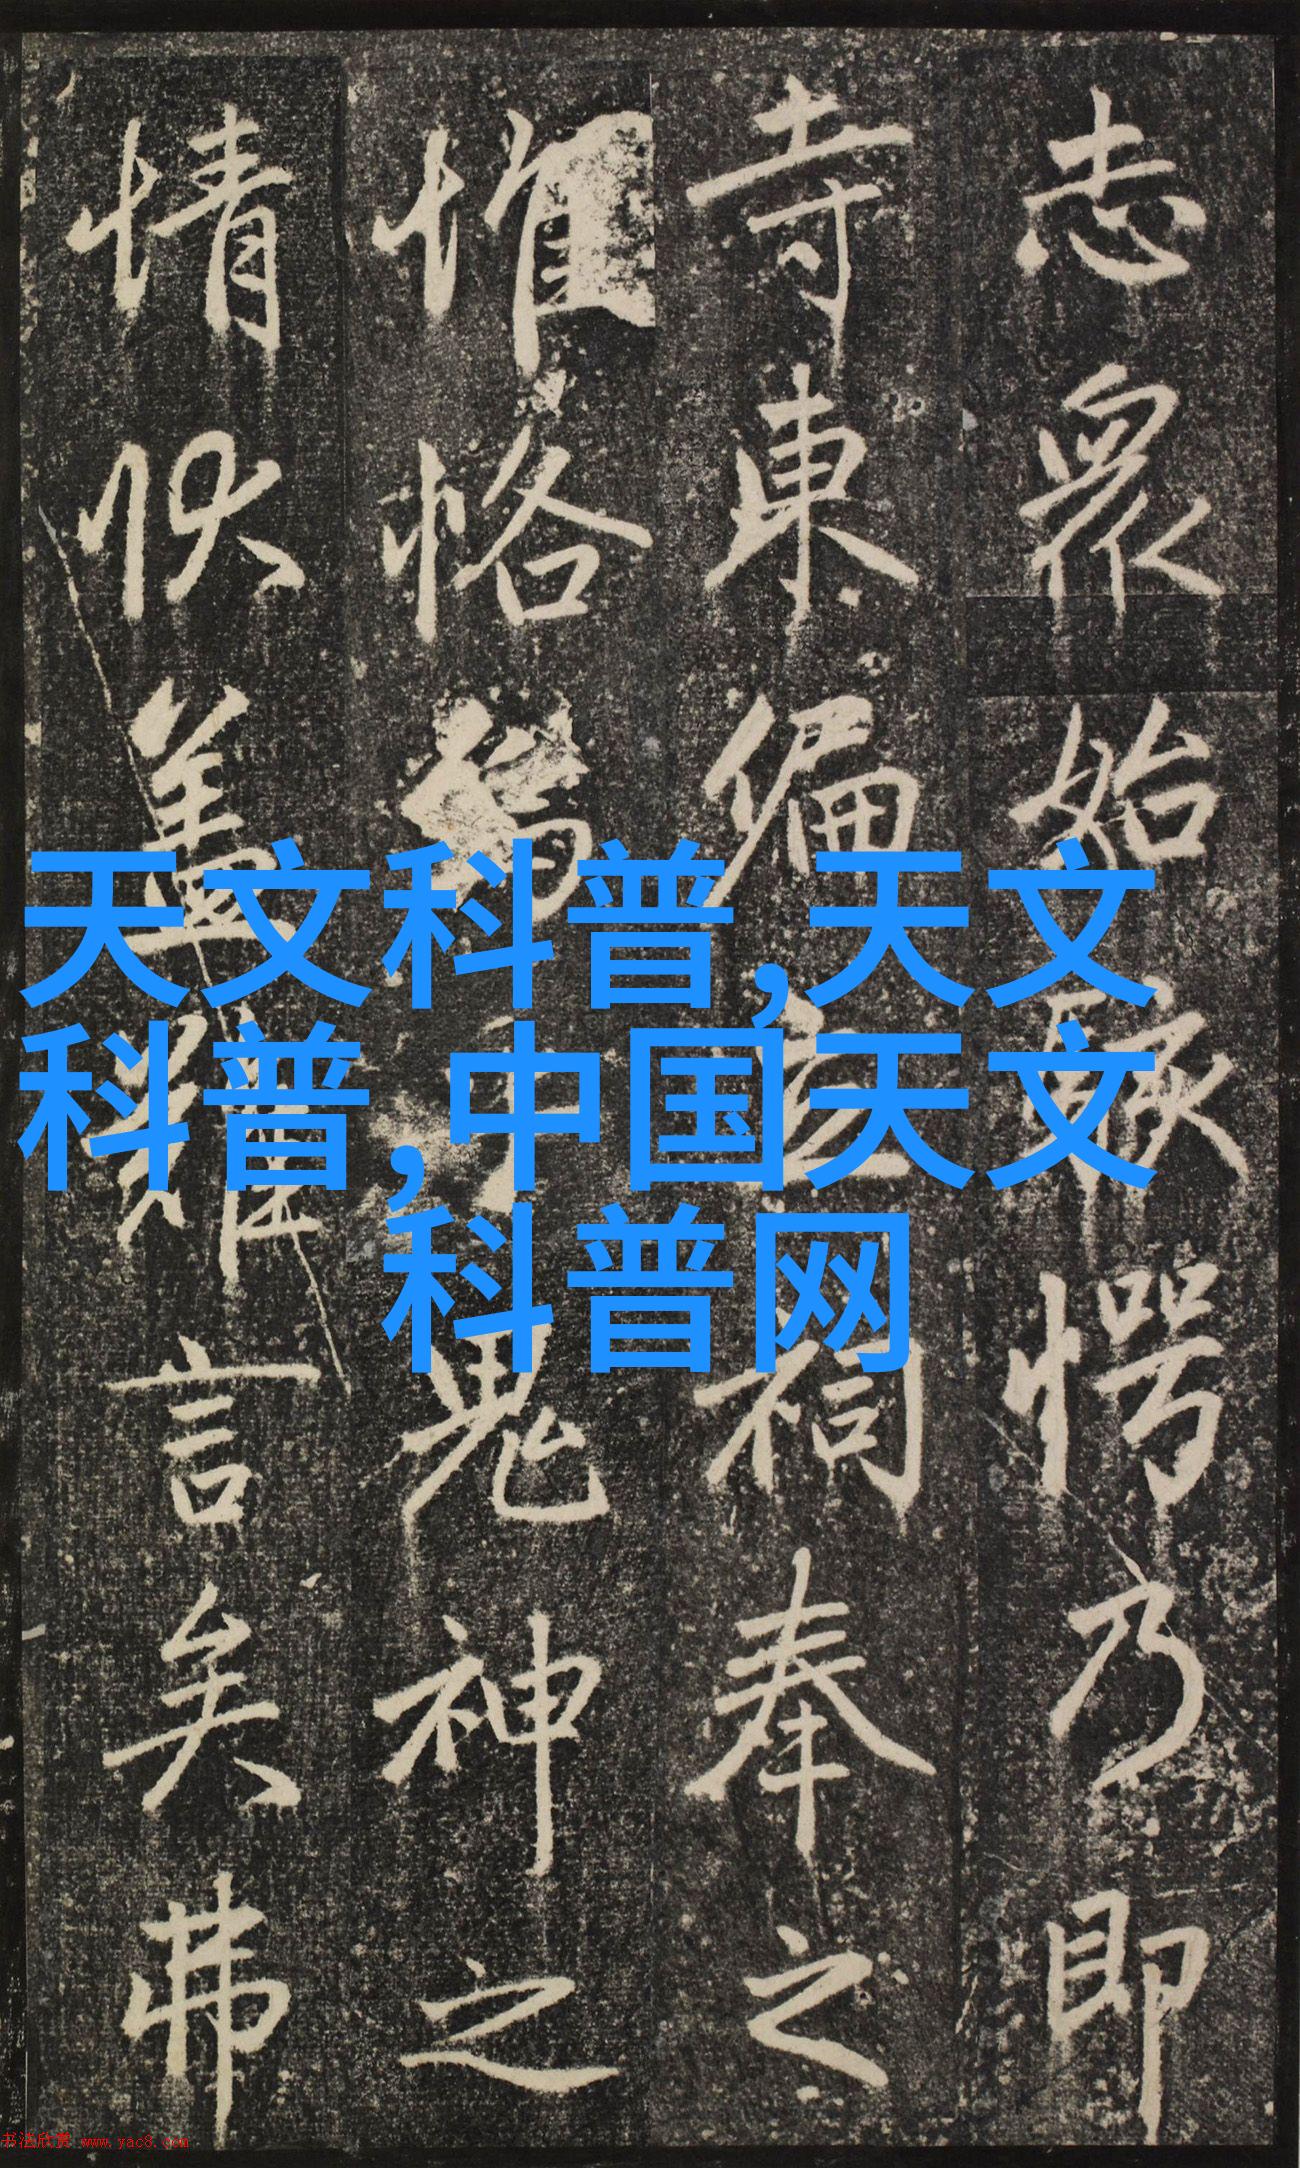 志眾始駭愕乃即
寺東偏立祠奉之
惟恪鬼神之
情狀蓋難言矣弗
天文科普,天文
科普,中国天文
科普网
书法欣赏 www.yac8.com